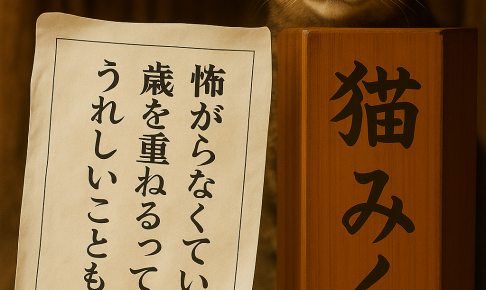 怖がらなくてい
歳を重ねるって
うれしいことも
猫みく